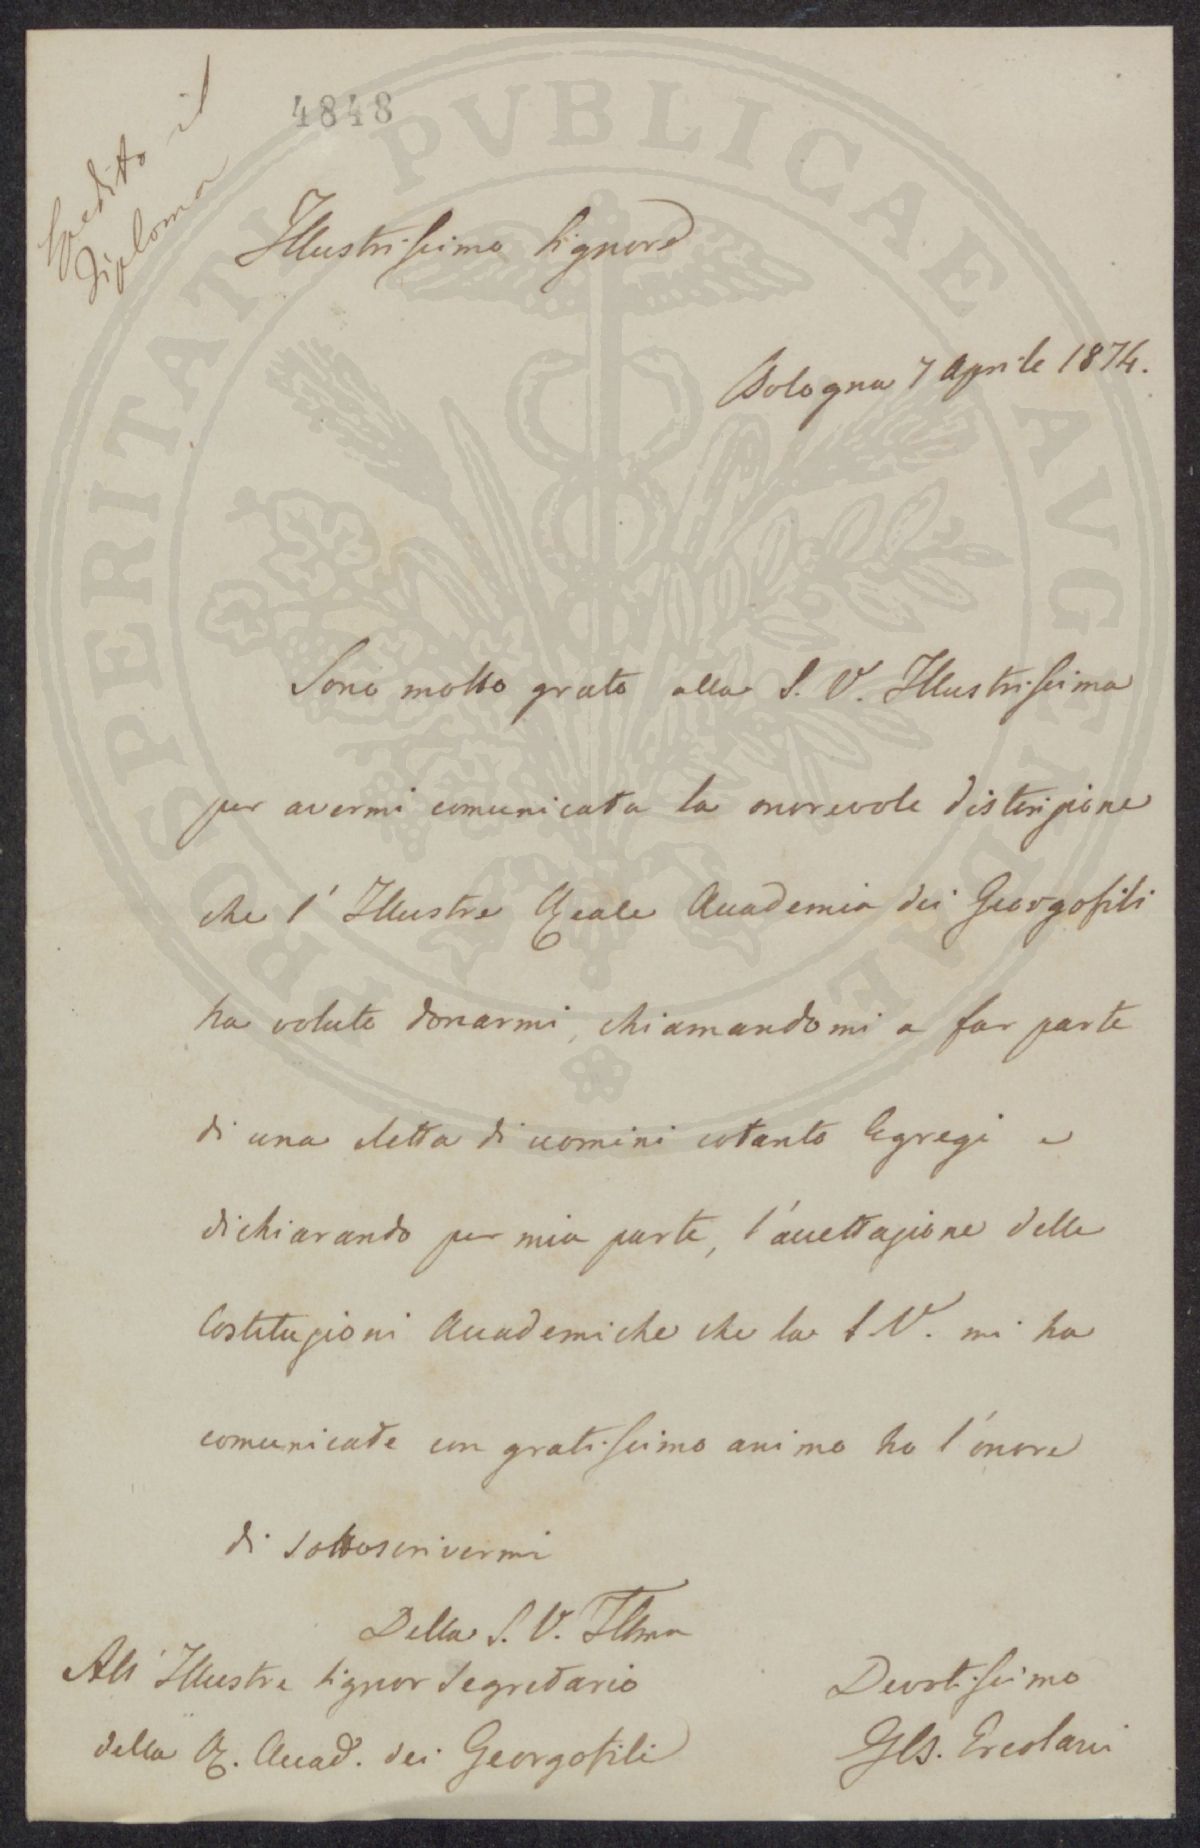 4848
Spedito il
Diploma
Illustrissimo Signore
Bologna 7 Aprile 1874.
Sono molto grato alla S. V. Illustrissima
per avermi comunicata la onorevole distinzione
che l' Illustre Reale Accademia dei Georgofili
ha voluto donarmi, chiamandomi a far parte
di una eletta di uomini cotanto Egregi e
dichiarando per mia parte, l'accettazione delle
Costituzioni Accademiche che la S. V. mi ha
comunicate con gratissimo animo ho l'onore
di sottoscrivermi
Della S. V. Illma
All' Illustre Signor Segretario
della R. Accad. dei Georgofili
Devotissimo
Ercolani
PROSPERITATI PVBLICAE AVGENDAE